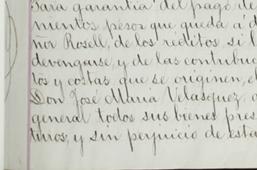 Para garantía del pago de
mentos pesos que queda á d
ñor Rosell, de los réditos si l
devengarse, y de las contribu
tos y costas que se originen, e
Don José María Velasquez, o
general todos sus bienes pres
turos, y sin perjuicio de esta